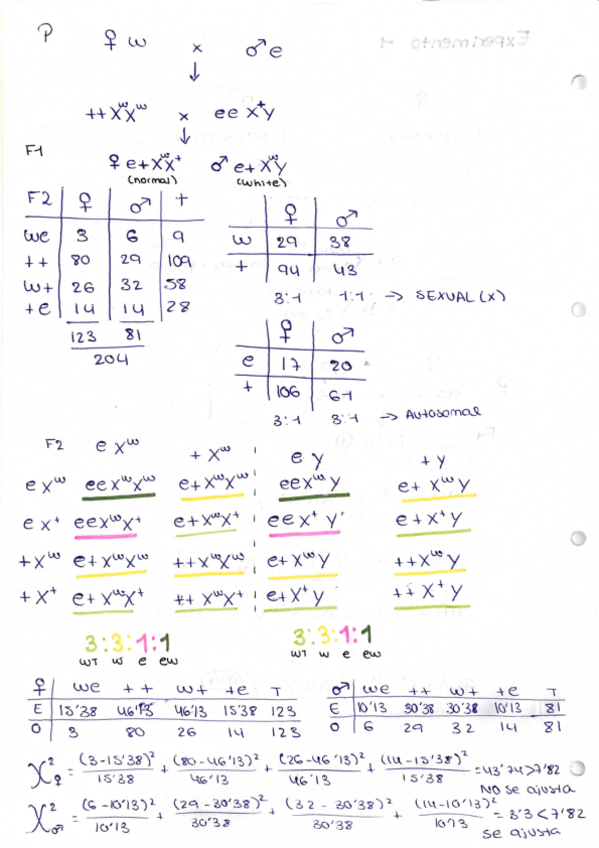 P ♀ w x ♂ e
↓
++ XʷXʷ x ee X⁺Y
↓
F1
♀ e+ XʷX⁺ ♂ e+ XʷY
(normal) (white)
F2 ♀ ♂ +
we 3 6 9
++ 80 29 109
w+ 26 32 58
+e 14 14 28
123 81
204
♀ ♂
w 29 38
+ 94 43
3:1 1:1 → SEXUAL (X)
♀ ♂
e 17 20
+ 106 61
3:1 3:1 → Autosomal
F2 e Xʷ + Xʷ e y + y
e Xʷ ee XʷXʷ e+ XʷXʷ ee XʷY e+ XʷY
e X⁺ ee XʷX⁺ e+ XʷX⁺ ee X⁺ Y e+ X⁺Y
+ Xʷ e+ XʷXʷ ++ XʷXʷ e+ XʷY ++ XʷY
+ X⁺ e+ XʷX⁺ ++ XʷX⁺ e+ X⁺Y ++ X⁺Y
3:3:1:1 3:3:1:1
WT w e ew WT w e ew
♀ we ++ w+ +e T
E 15'38 46'13 46'13 15'38 123
O 3 80 26 14 123
♂ we ++ w+ +e T
E 10'13 30'38 30'38 10'13 81
O 6 29 32 14 81
X²♀ = (3-15'38)²/15'38 + (80-46'13)²/46'13 + (26-46'13)²/46'13 + (14-15'38)²/15'38 = 43'74 > 7'82
NO se ajusta
X²♂ = (6-10'13)²/10'13 + (29-30'38)²/30'38 + (32-30'38)²/30'38 + (14-10'13)²/10'13 = 3'3 < 7'82
se ajusta
Experimento 1